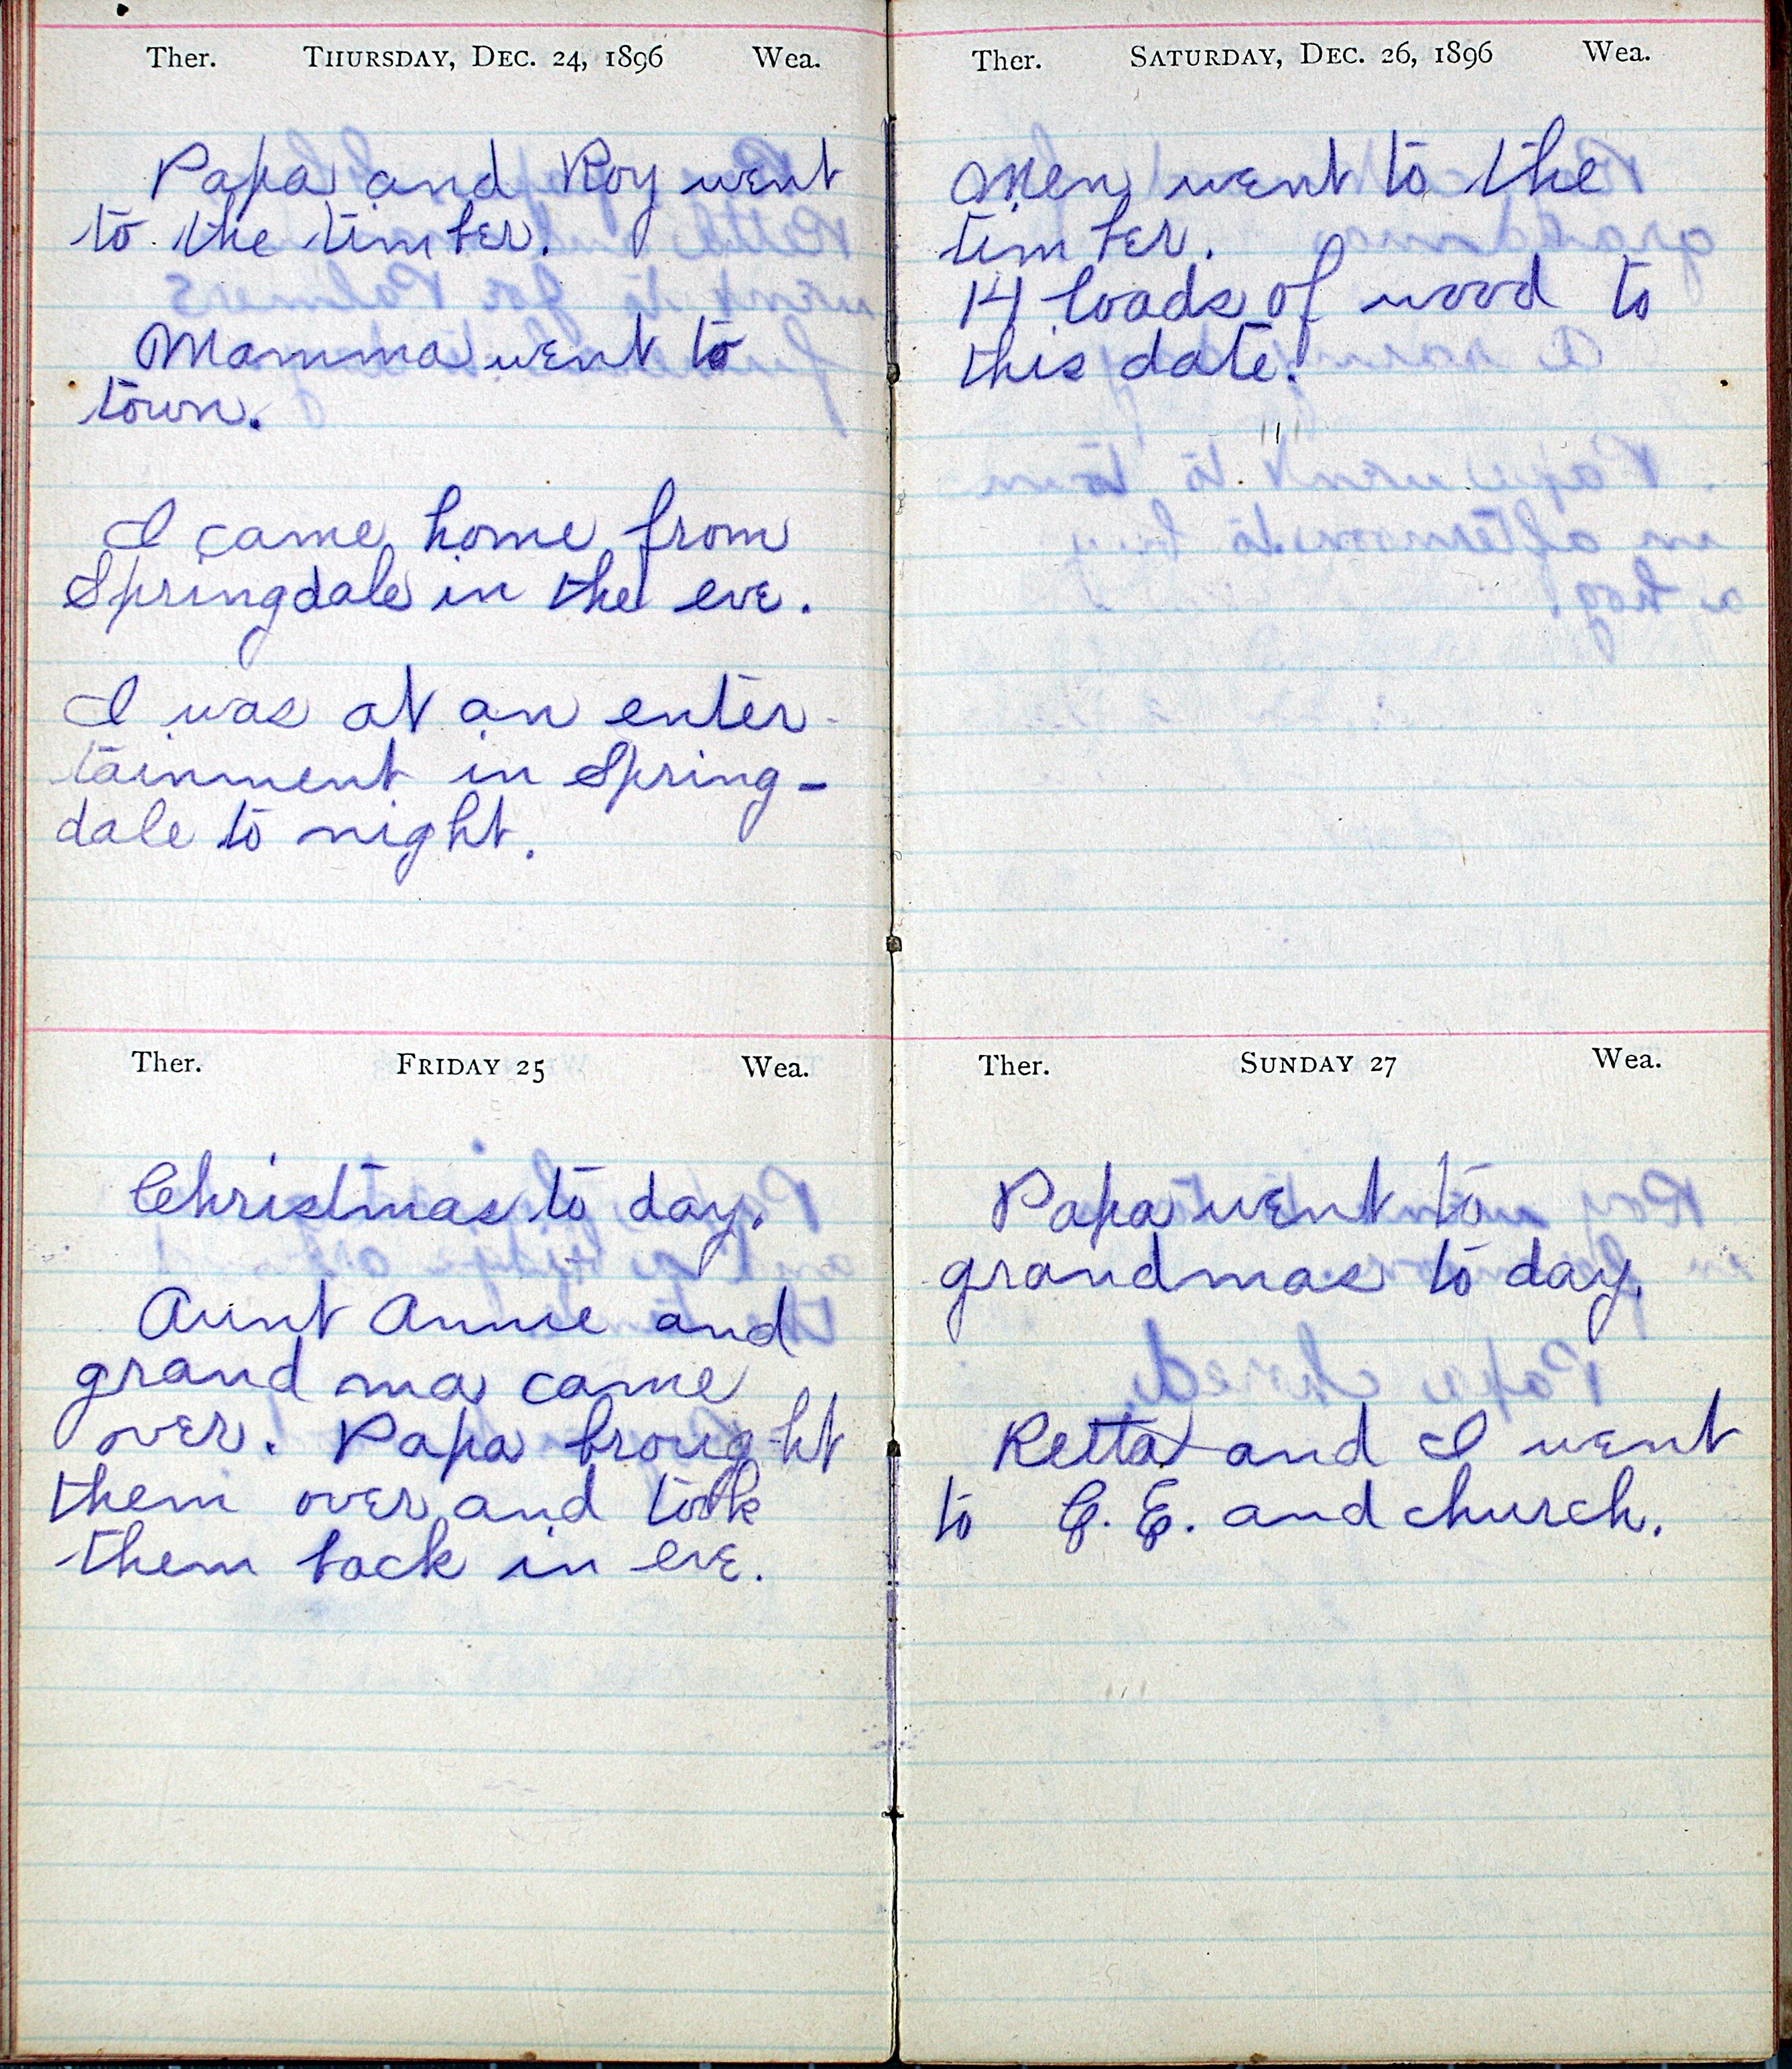 Ther. THURSDAY, DEC. 24, 1896 Wea.
Papa and Roy went
to the timber.
Mamma went to
town.
I came home from
Springdale in the eve.
I was at an enter-
tainment in Spring-
dale to night.
Ther. FRIDAY 25 Wea.
Christmas to day.
Aunt Annie and
grand ma came
over. Papa brought
them over and took
them back in eve.
Ther. SATURDAY, DEC. 26, 1896 Wea.
Men went to the
timber.
14 loads of wood to
this date.
Ther. SUNDAY 27 Wea.
Papa went to
grandmas to day.
Retta and I went
to C. E. and church.